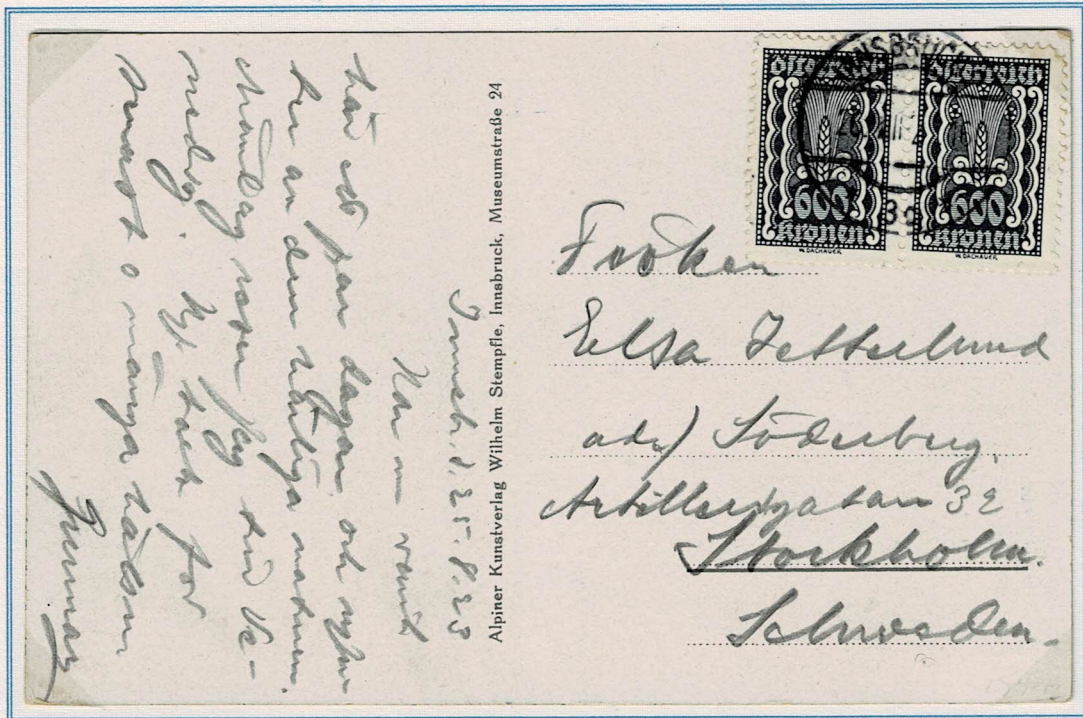 INNSBRUCK
Österreich
600
Kronen
W. DACHAUER
Österreich
600
Kronen
W. DACHAUER
Fröken
Elsa Zetterlund
adr/ Söderberg,
Artillerigatan 32
Stockholm.
Schweden.
Alpiner Kunstverlag Wilhelm Stempfle, Innsbruck, Museumstraße 24
Innsb. d. 25.8.23
Har nu varit
här ett par dagar och
ter av den härliga naturen.
Måndag reser jag till Ve-
nedig. Hjt tack för
senast o många hälsn
Gunnar